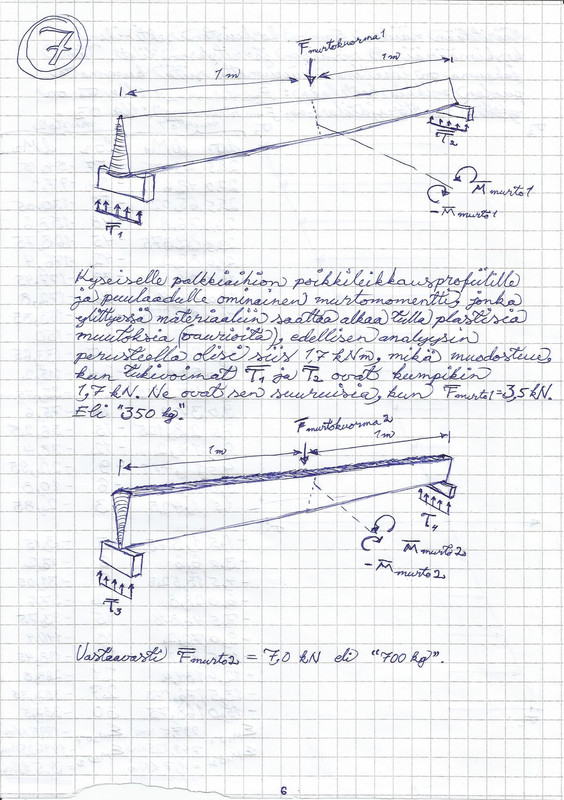 7
F̅murtokuorma1
1 m
1 m
T̅₂
M̅murto1
-M̅murto1
T̅₁
Kyseiselle palkkiaihion poikkileikkausprofiilille
ja puulaadulle ominainen murtomomentti, jonka
ylittyessä materiaaliin saattaa alkaa tulla plastisia
muutoksia (vaurioita), edellisen analyysin
perusteella olisi siis 1,7 kNm, mikä muodostuu,
kun tukivoimat T̅₁ ja T̅₂ ovat kumpikin
1,7 kN. Ne ovat sen suuruisia, kun F̅murto1=3,5 kN.
Eli "350 kg".
F̅murtokuorma2
1m
1m
T̅₄
M̅murto2
-M̅murto2
T̅₃
Vastaavasti F̅murto2 = 7,0 kN eli "700 kg".
6